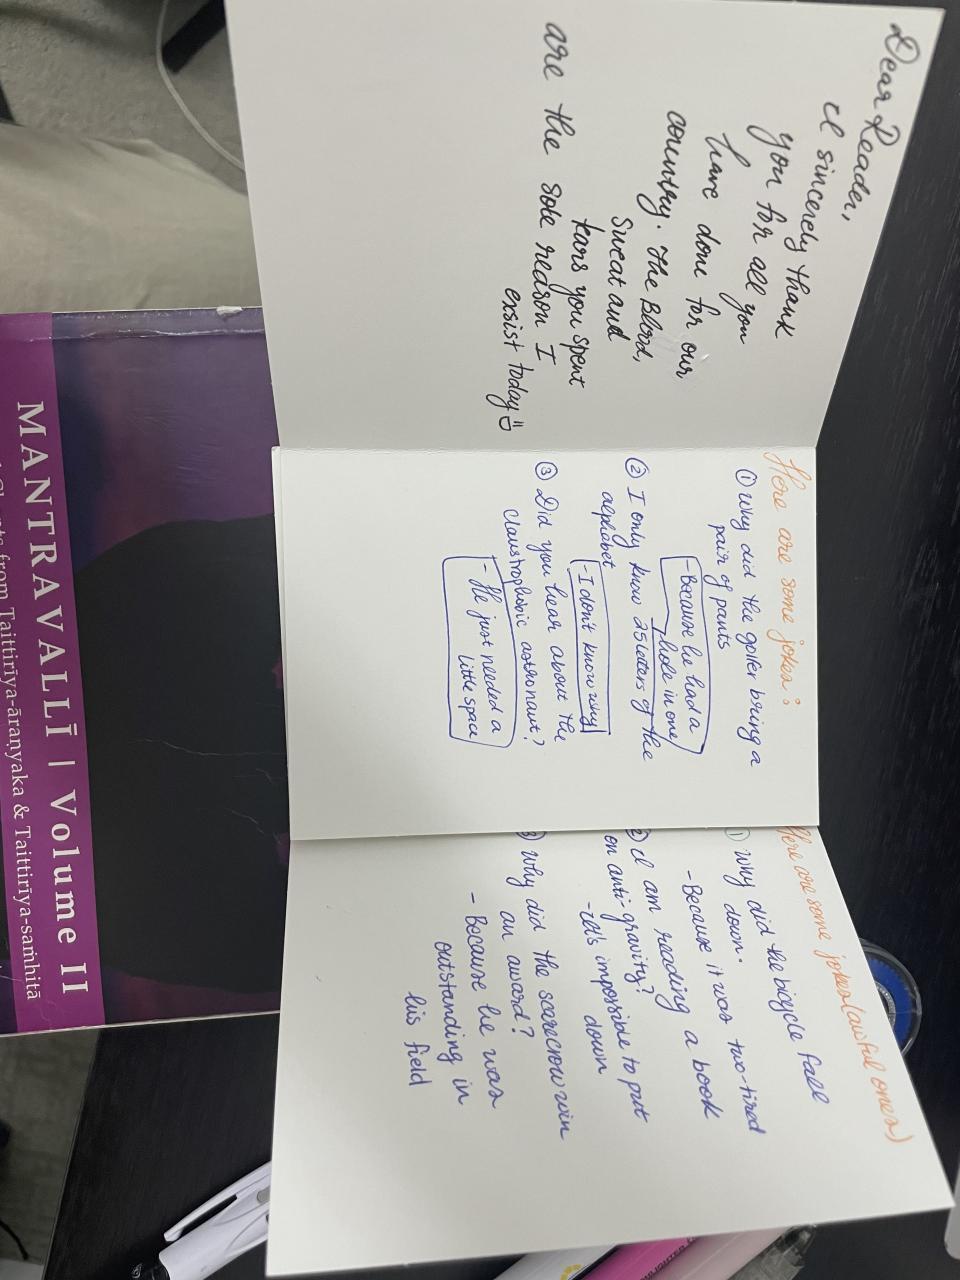 Dear Reader,
I sincerely thank
you for all you
have done for our
country. The Blood,
Sweat and
tears you spent
are the sole reason I
exsist today
Here are some jokes:
① Why did the golfer bring a
pair of pants
- Because he had a
hole in one
② I only know 25 letters of the
alphabet
- I don't know why
③ Did you hear about the
claustrophobic astronaut?
- He just needed a
little space
Here are some jokes (awful ones)
① Why did the bicycle fall
down.
- Because it was two-tired
2) I am reading a book
on anti-gravity?
- it's impossible to put
down
3) Why did the scarecrow win
an award?
- Because he was
outstanding in
his field
MANTRAVALLĪ | Volume II
Chants from Taittirīya-āraṇyaka & Taittirīya-saṁhitā